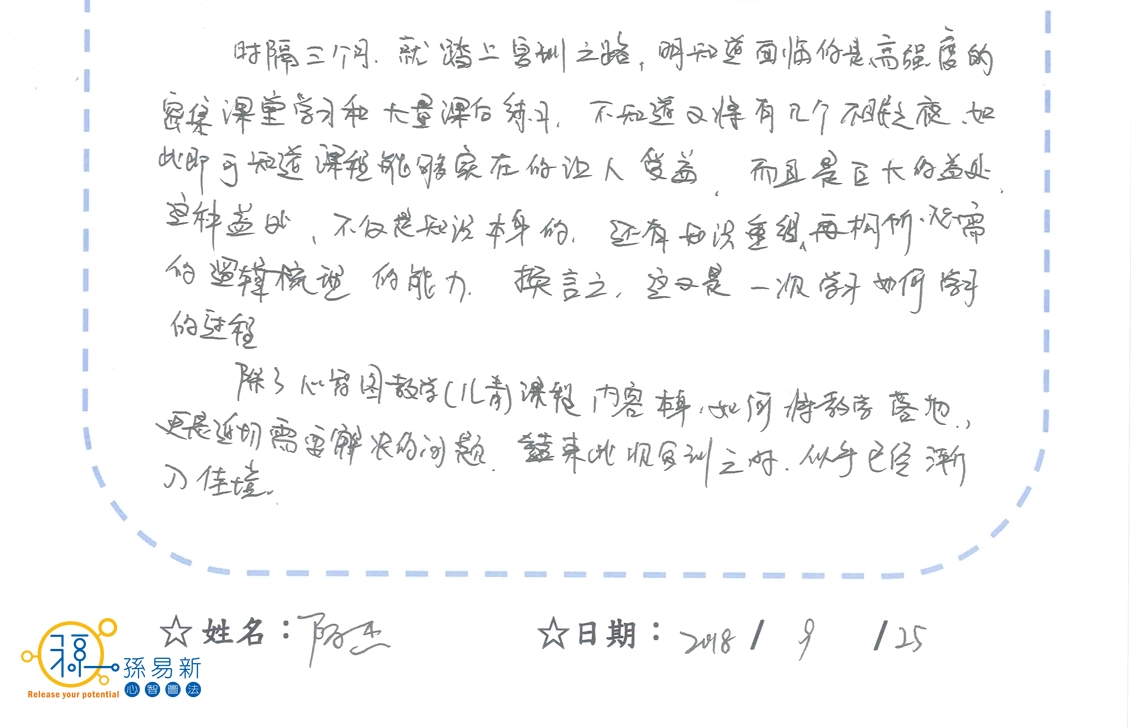 时隔三个月,就踏上复训之路,明知道面临的是高强度的
密集课堂学习和大量课后练习,不知道又将有几个不眠之夜,如
此即可知道课程能够实在的让人受益,而且是巨大的益处,
这种益处,不仅是知识本身的,还有知识重组、再构所需
的逻辑梳理的能力,换言之,这又是一次学习如何学习
的过程
除了心智图教学(儿青)课程内容本身,如何将教学落地,
更是迫切需要解决的问题。结束此次复训之时,似乎已经渐
入佳境。
☆姓名:陈杰
☆日期:2018/9/25
孫易新
心智圖法
Release your potential